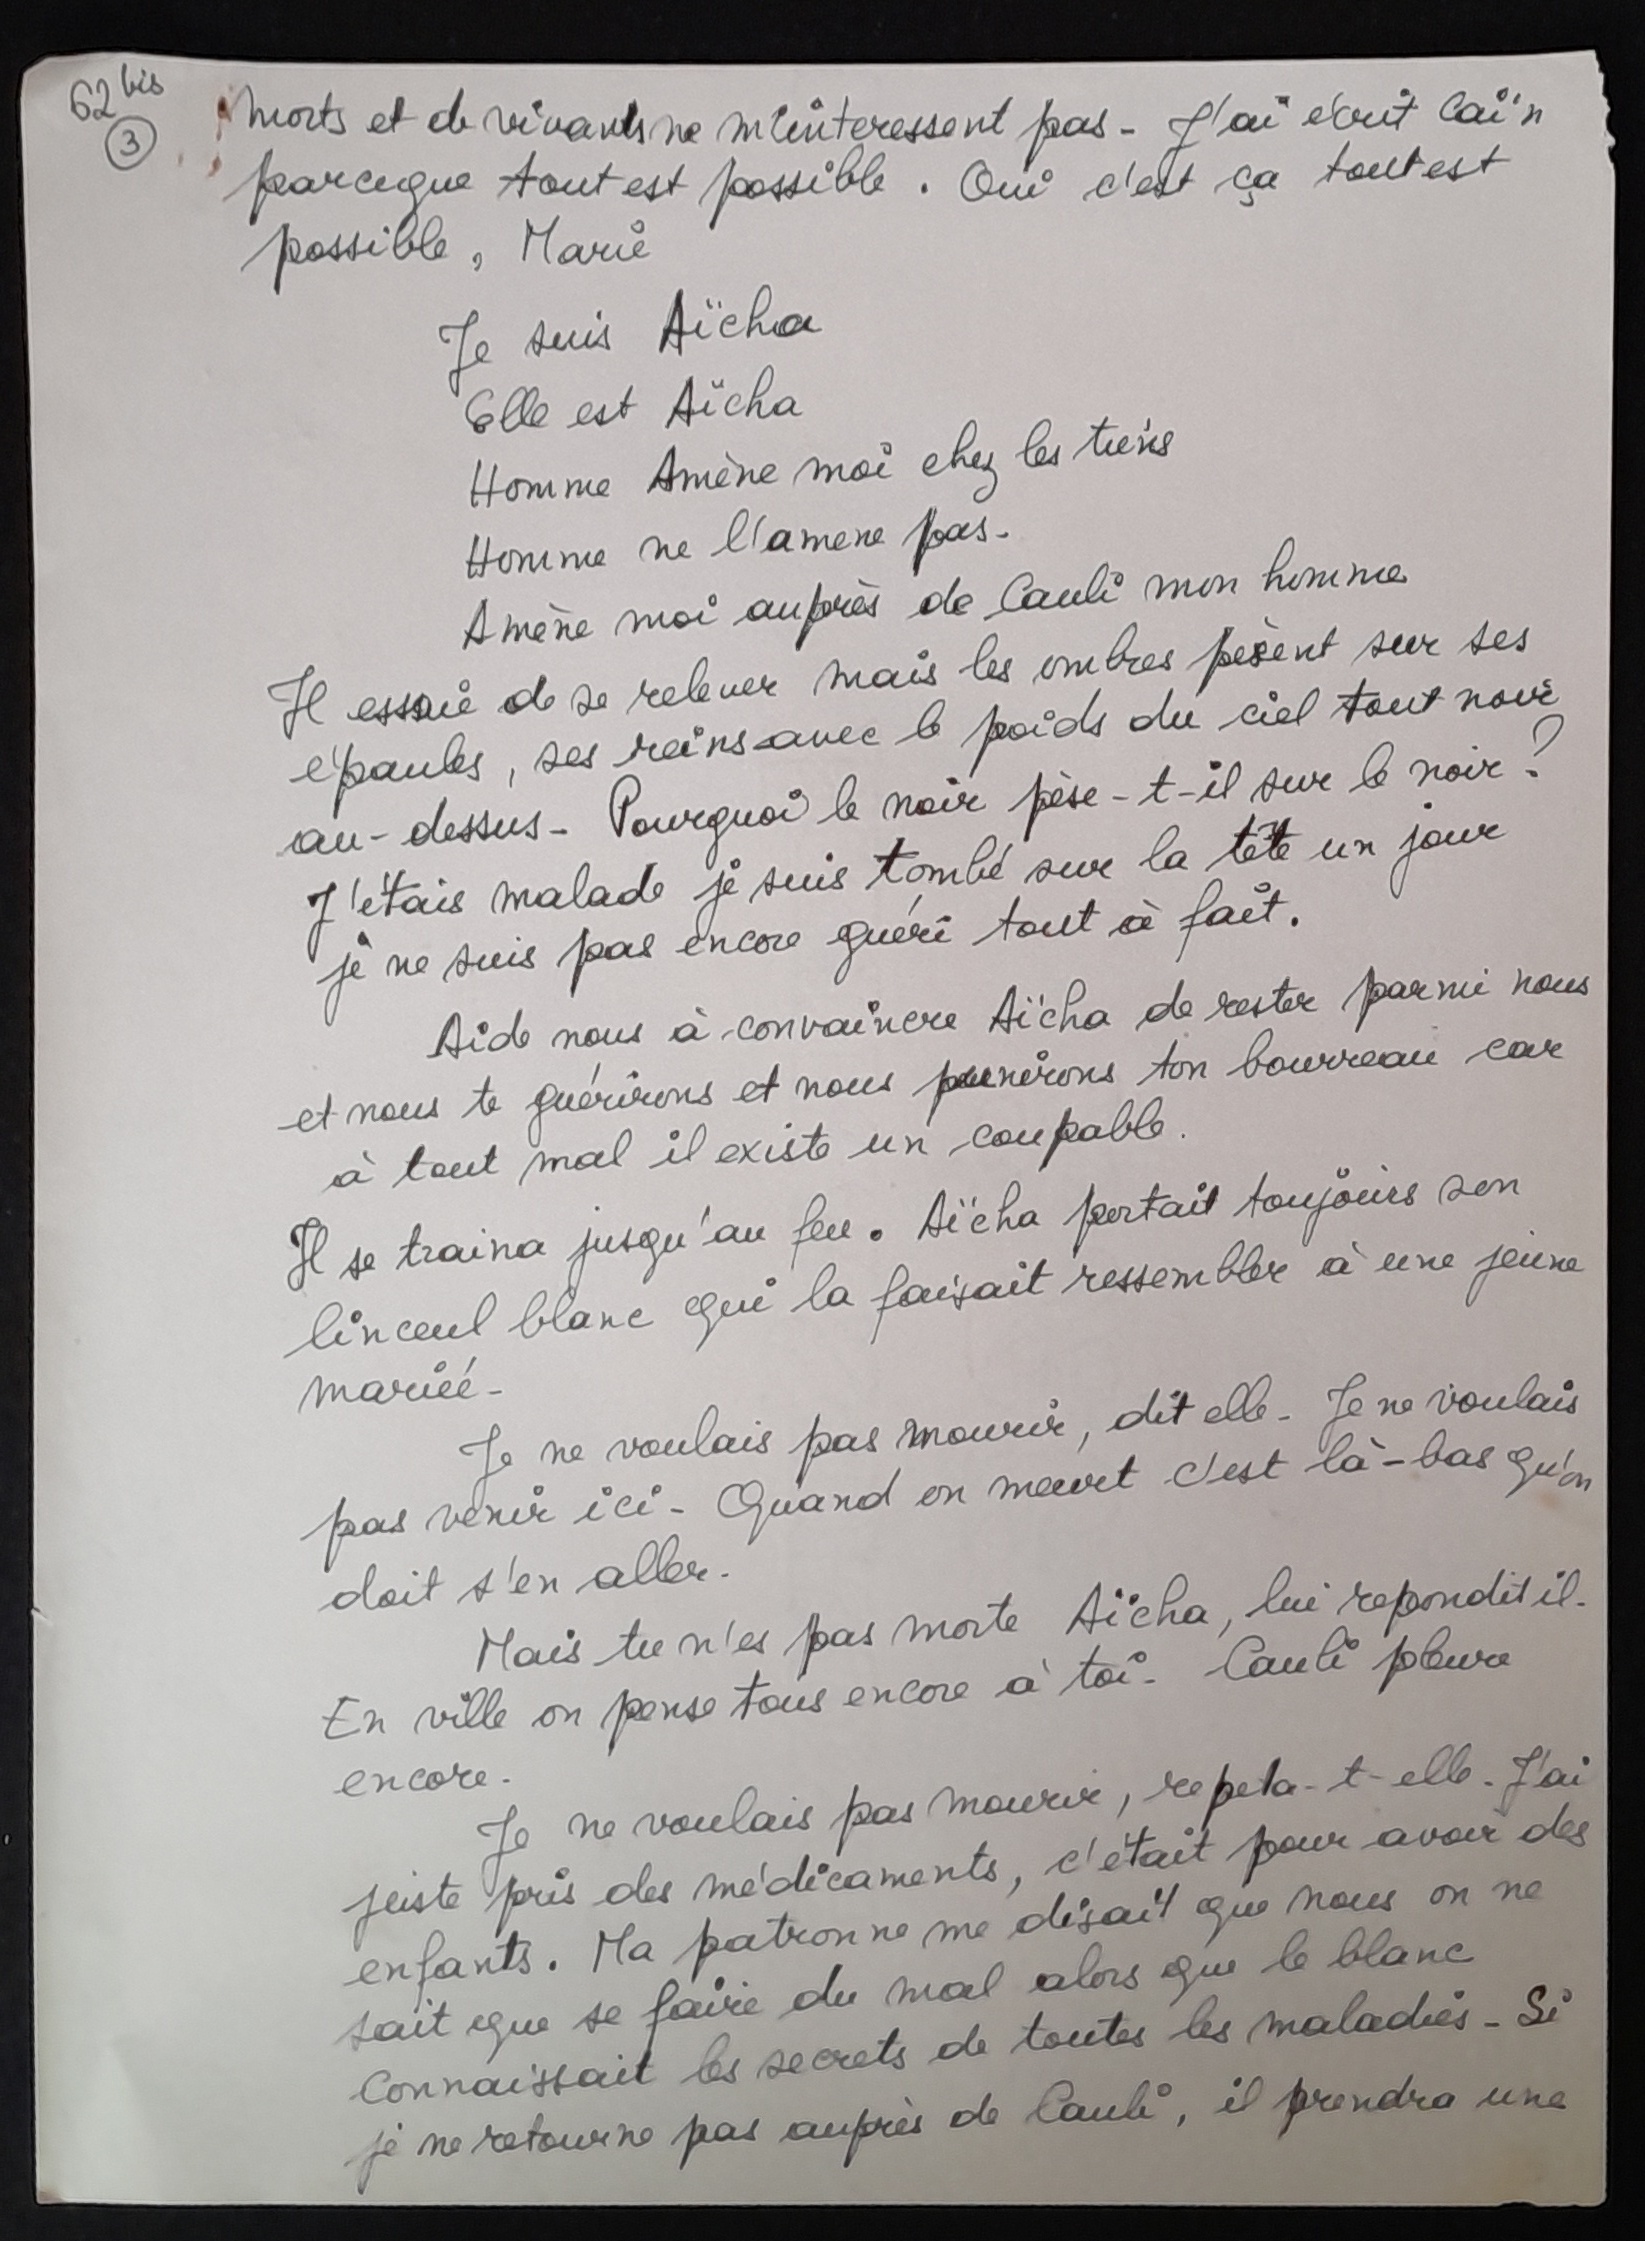 62 bis
3
morts et de vivants ne m'interessent pas - J'ai écrit Caïn
parceque tout est possible. Oui c'est ça tout est
possible, Marie
Je suis Aïcha
Elle est Aïcha
Homme Amène moi chez les tiens
Homme ne l'amene pas -
Amène moi auprès de Cauli mon homme
Il essaie de se relever mais les ombres pèsent sur ses
épaules, ses reins avec le poids du ciel tout noir
au-dessus - Pourquoi le noir pèse-t-il sur le noir ?
J'étais malade je suis tombé sur la tête un jour
je ne suis pas encore guéri tout à fait.
Aide nous à convaincre Aïcha de rester parmi nous
et nous te guérirons et nous punirons ton bourreau car
à tout mal il existe un coupable.
Il se traina jusqu'au feu. Aïcha portait toujours son
linceul blanc qui la faisait ressembler à une jeune
mariée -
Je ne voulais pas mourir, dit elle - Je ne voulais
pas venir ici - Quand on meurt c'est là-bas qu'on
doit s'en aller -
Mais tu n'es pas morte Aïcha, lui repondit il -
En ville on pense tous encore à toi - Cauli pleure
encore -
Je ne voulais pas mourir, repeta-t-elle - J'ai
juste pris des médicaments, c'était pour avoir des
enfants. Ma patronne me disait que nous on ne
sait que se faire du mal alors que le blanc
connaissait les secrets de toutes les maladies - Si
je ne retourne pas auprès de Cauli, il prendra une